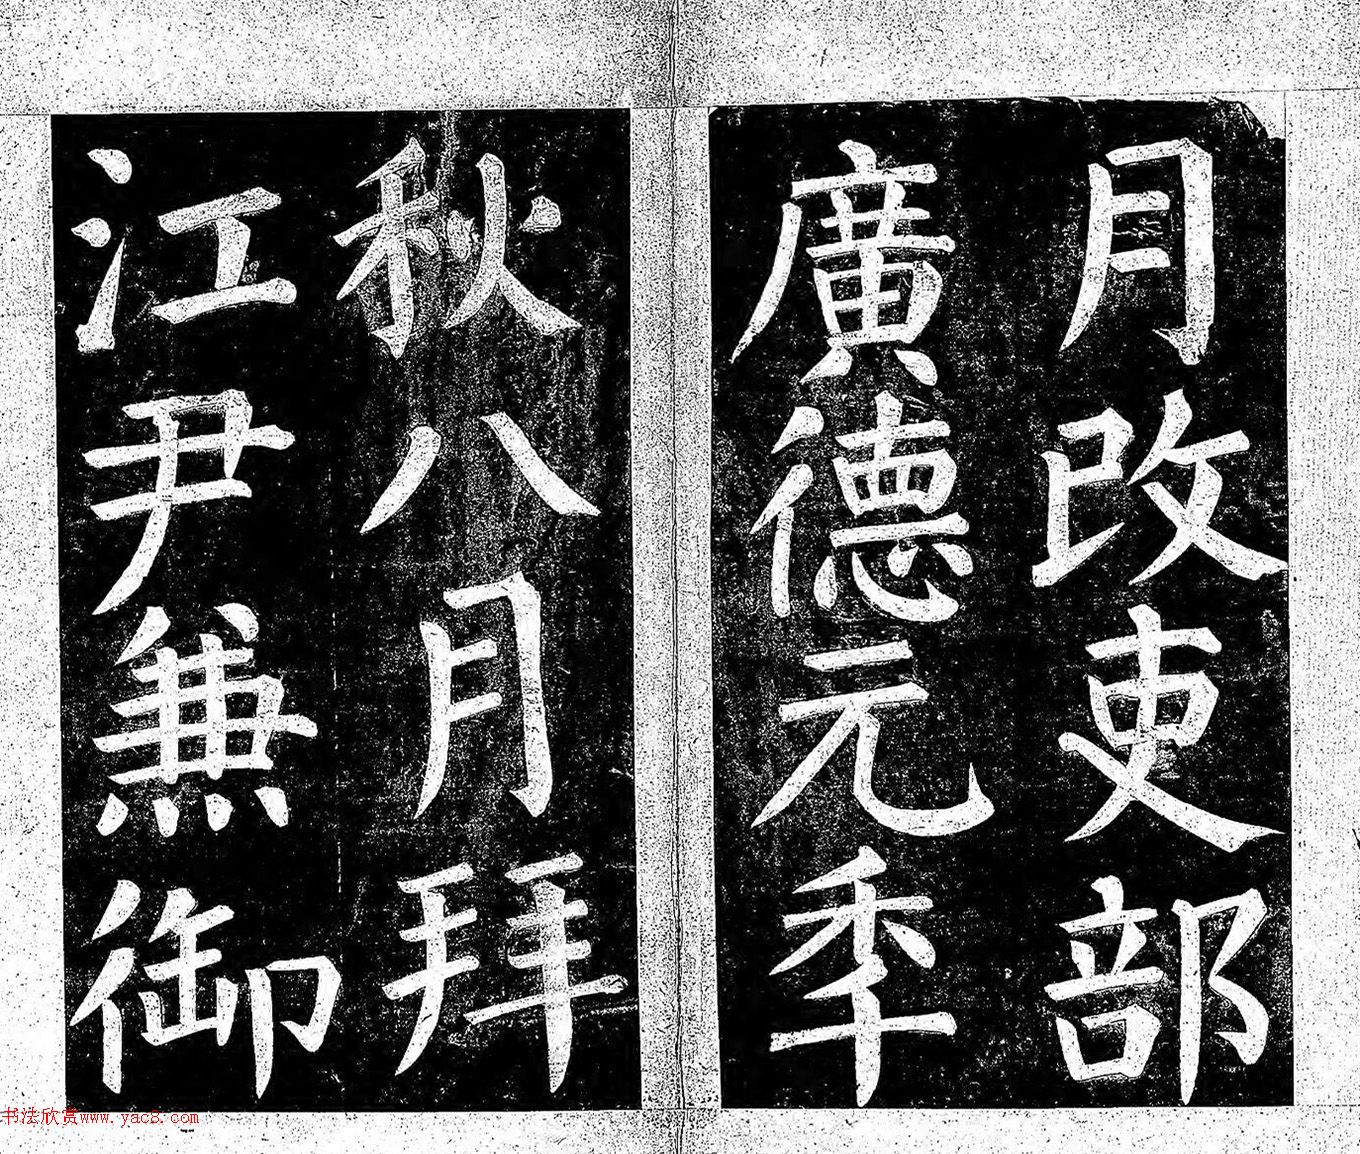 月改吏部
廣德元秊
秋八月拜
江尹兼御
书法欣赏www.yac8.com